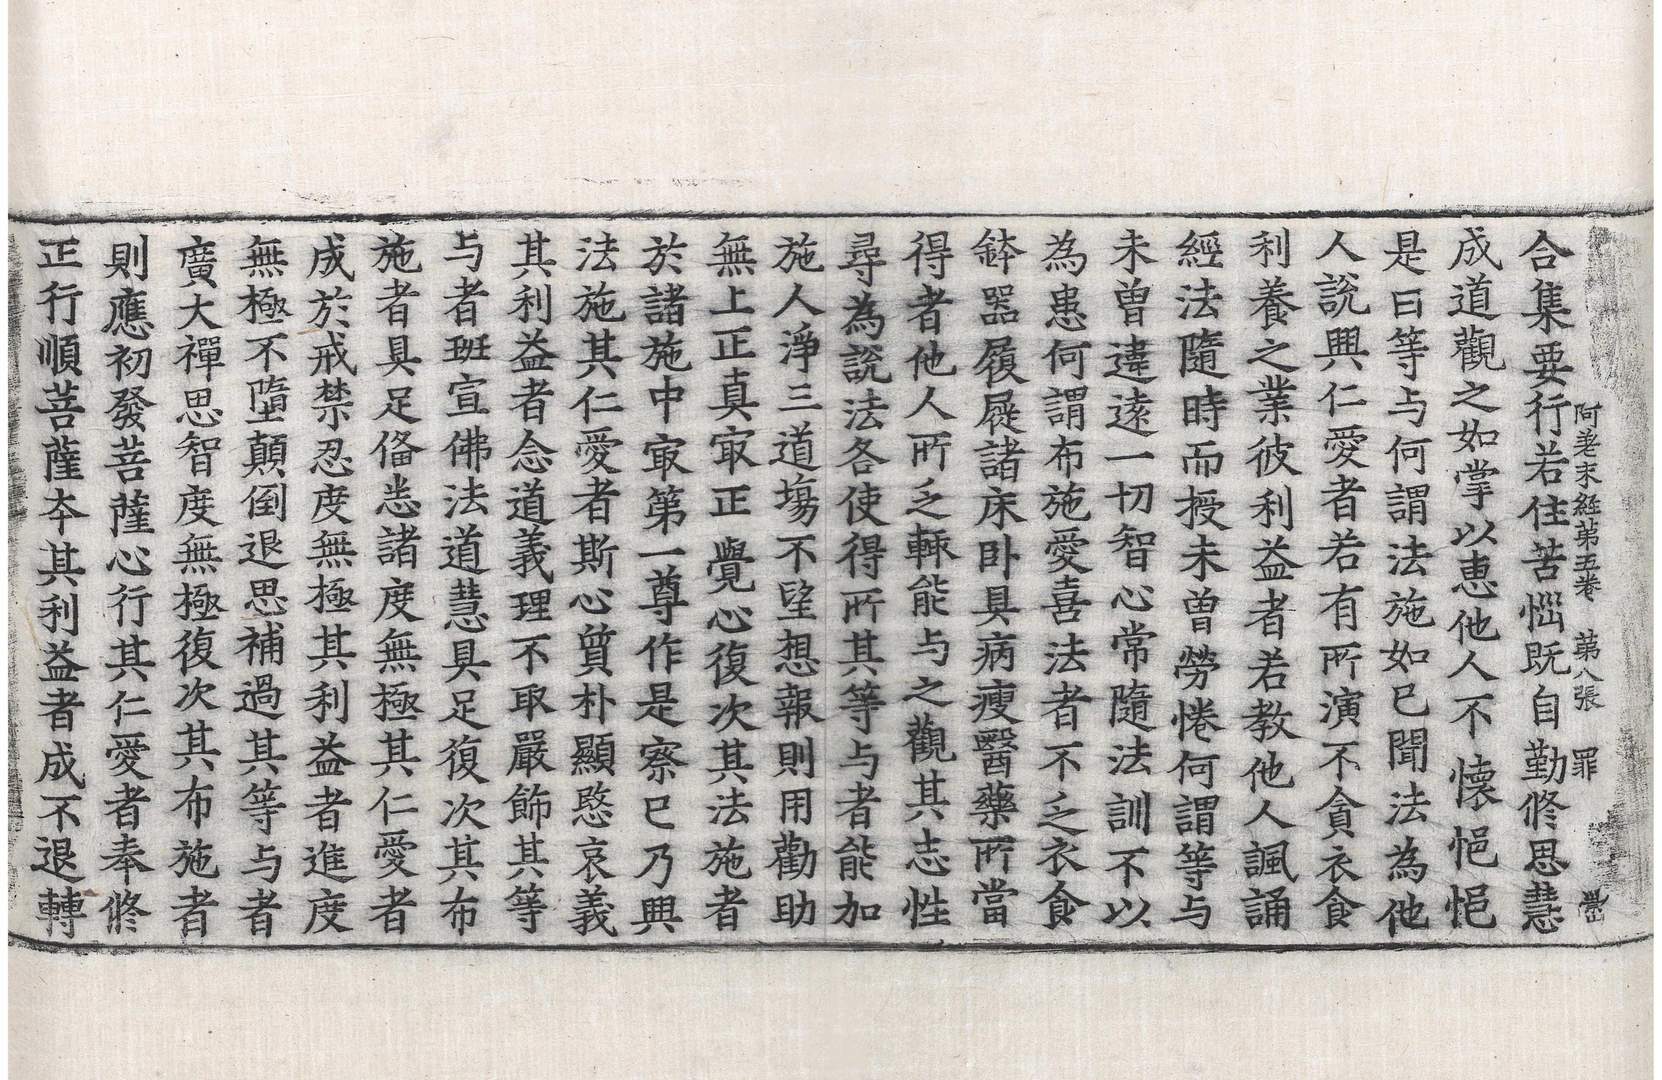 阿差末経第五卷　第八張　罪
合集要行若住苦惱既自勤修思慧
成道觀之如掌以恵他人不懷悒悒
是曰等与何謂法施如巳聞法為他
人說興仁愛者若有所演不貪衣食
利養之業彼利益者若教他人諷誦
經法隨時而授未曽勞惓何謂等与
未曽違遠一切智心常隨法訓不以
為患何謂布施愛喜法者不乏衣食
鉢器履屣諸床卧具病瘦醫藥所當
得者他人所乏輙能与之觀其志性
尋為說法各使得所其等与者能加
施人淨三道塲不望想報則用勸助
無上正真㝡正覺心復次其法施者
於諸施中㝡第一尊作是察巳乃興
法施其仁愛者斯心質朴顯愍哀義
其利益者念道義理不取嚴飾其等
与者班宣佛法道慧具足復次其布
施者具足俻悉諸度無極其仁愛者
成於戒禁忍度無極其利益者進度
無極不墮顛倒退思補過其等与者
廣大禪思智度無極復次其布施者
則應初發菩薩心行其仁愛者奉修
正行順菩薩夲其利益者成不退轉